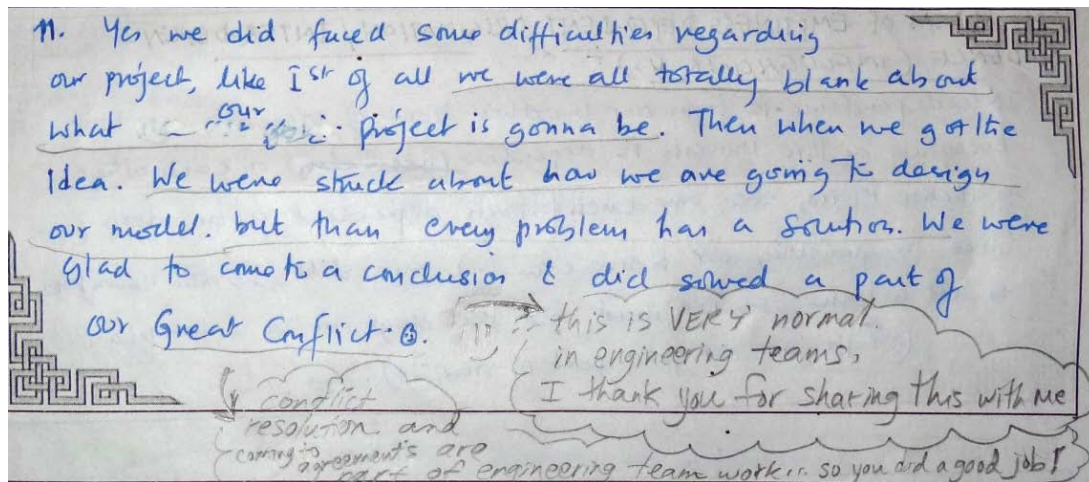 11. Yes we did faced some difficulties regarding
our project, like Ist of all we were all totally blank about
what our project is gonna be. Then when we got the
Idea. We were struck about how we are going to design
our model. but than every problem has a solution. We were
glad to come to a conclusion & did solved a part of
our Great Conflict. ☺.
this is VERY normal
in engineering teams,
I thank you for sharing this with me
conflict
resolution and
coming to agreements are
part of engineering team work.. so you did a good job!